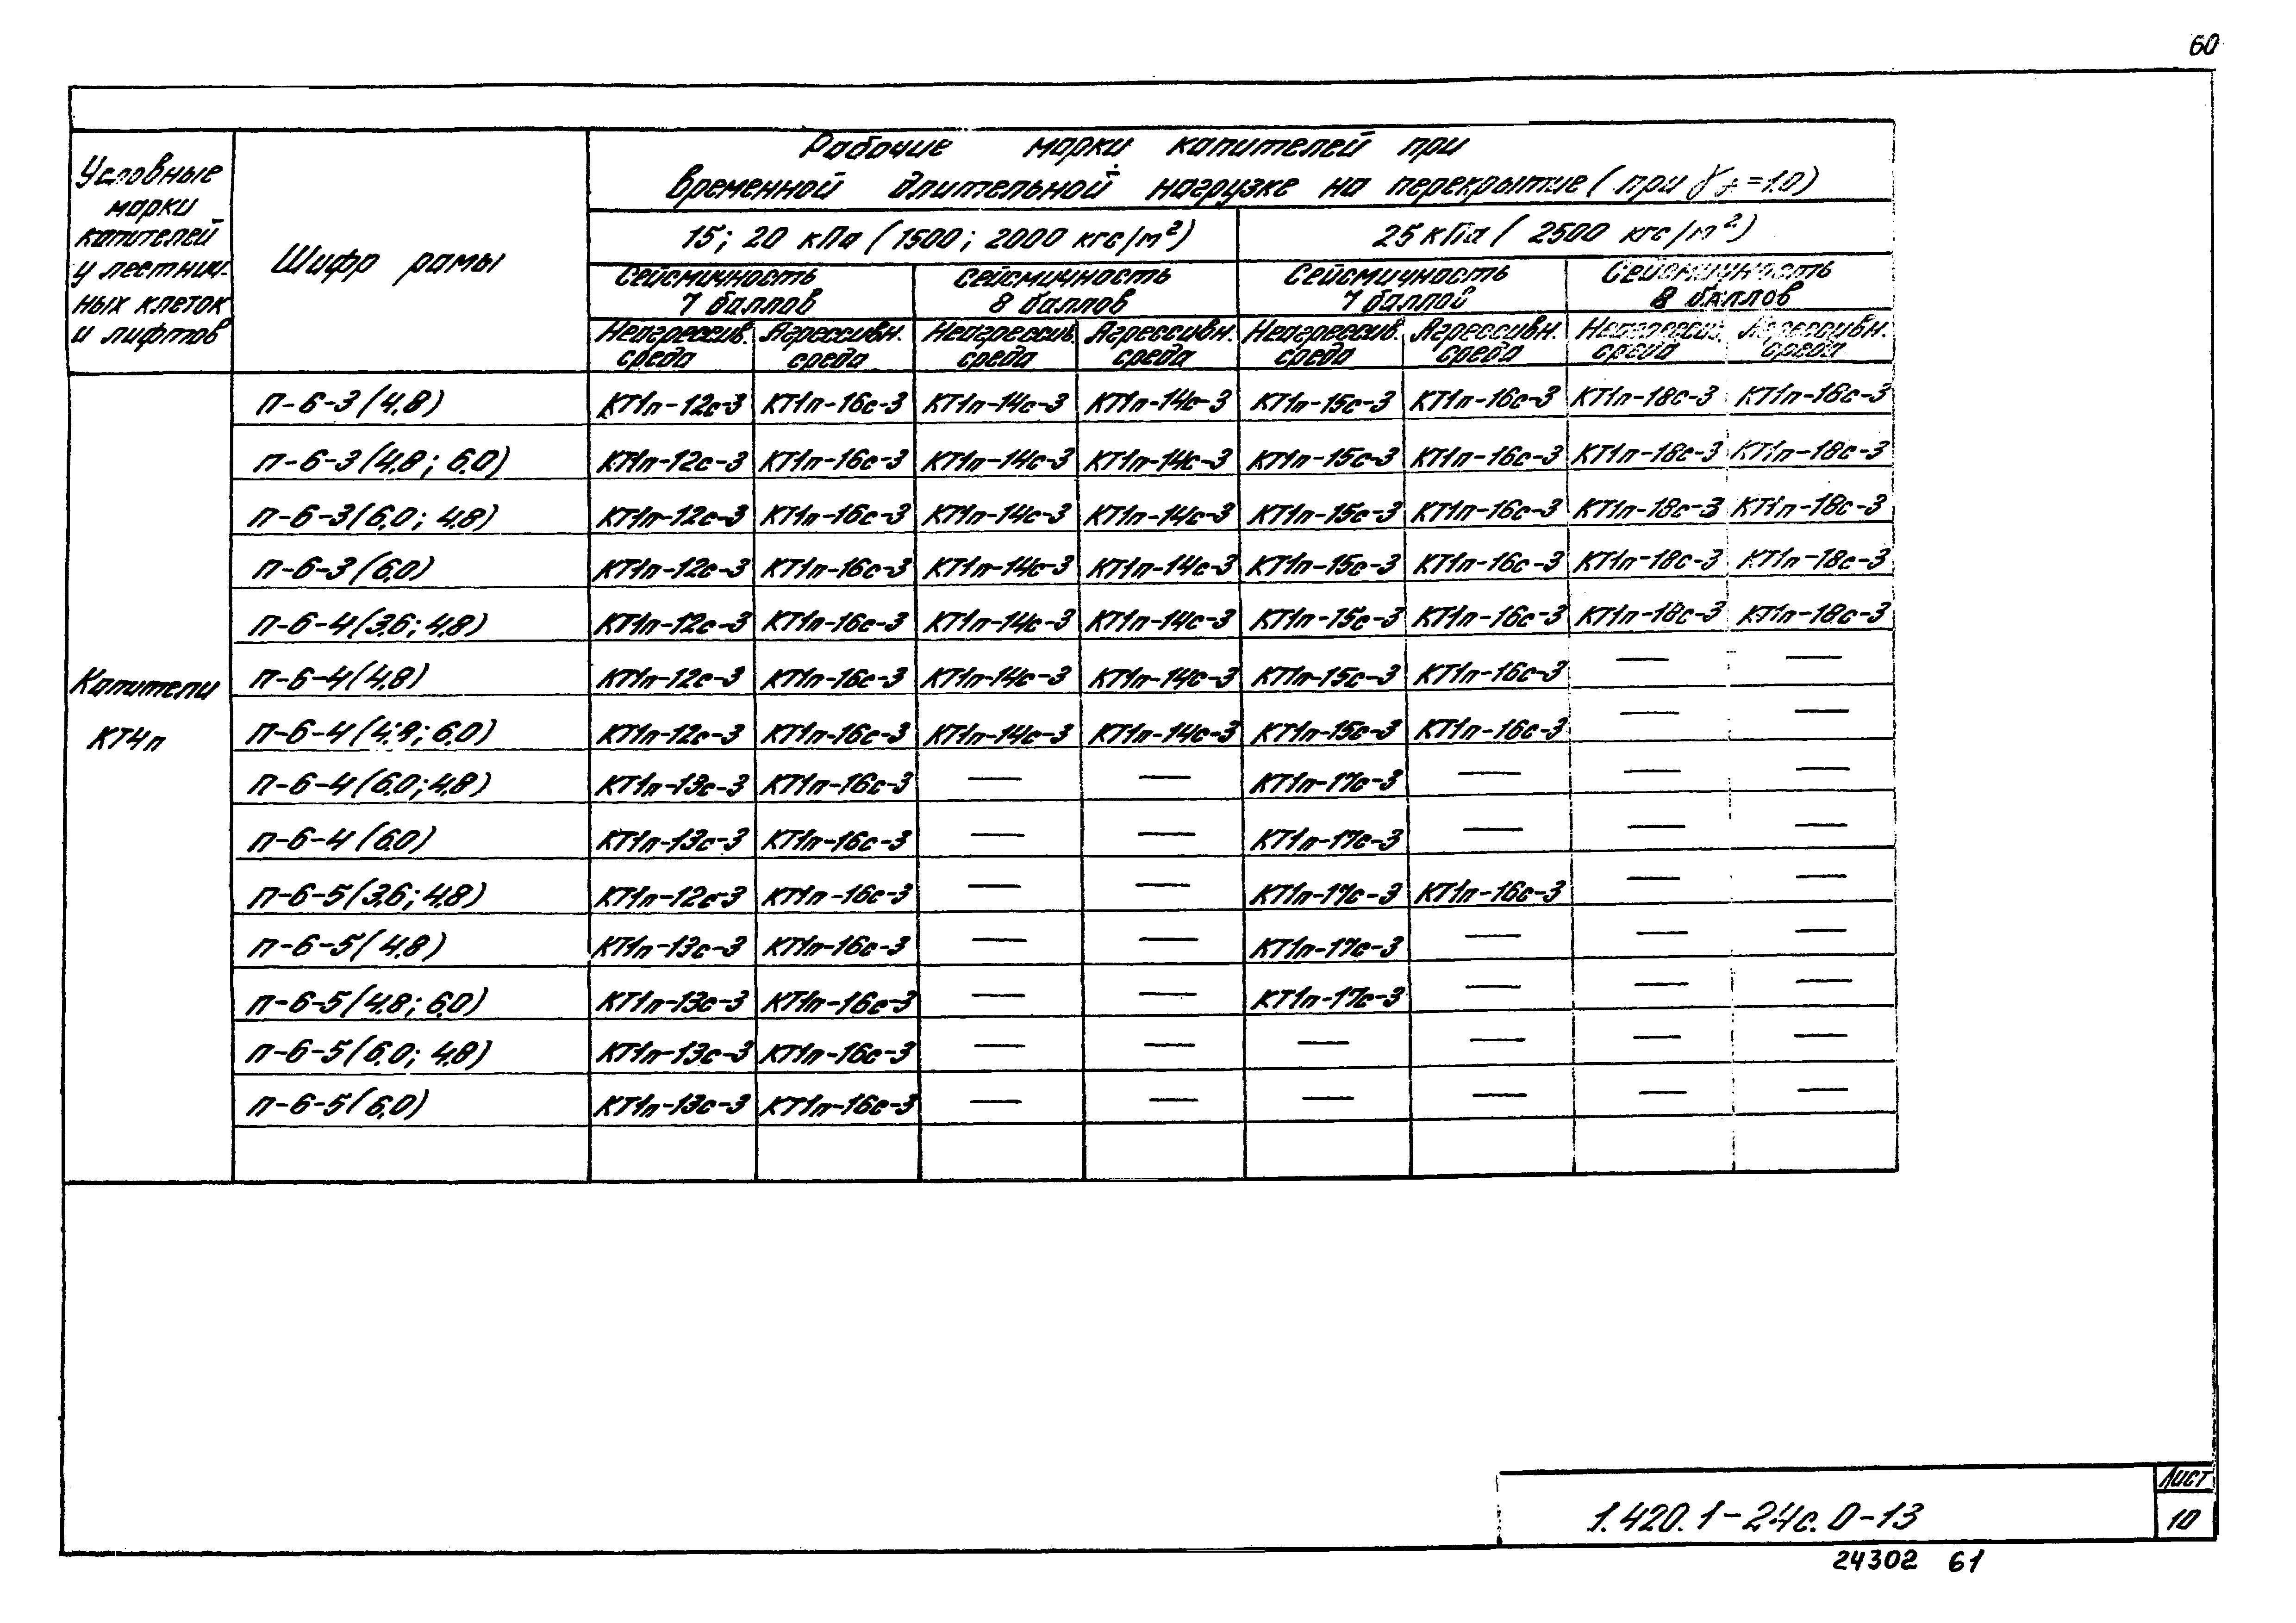 60
Условные марки капителей у лестнич-ных клеток и лифтов
Шифр рамы
Рабочие марки капителей при
временной длительной нагрузке на перекрытие (при γf=1.0)
15; 20 кПа (1500; 2000 кгс/м²) 25 кПа (2500 кгс/м²)
Сейсмичность 7 баллов Сейсмичность 8 баллов Сейсмичность 7 баллов Сейсмичность 8 баллов
Неагрессив. среда Агрессивн. среда Неагрессив. среда Агрессивн. среда Неагрессив. среда Агрессивн. среда Неагрессив. среда Агрессивн. среда
П-6-3(4,8) КТ1п-12с-3 КТ1п-16с-3 КТ1п-14с-3 КТ1п-14с-3 КТ1п-15с-3 КТ1п-16с-3 КТ1п-18с-3 КТ1п-18с-3
П-6-3(4,8; 6,0) КТ1п-12с-3 КТ1п-16с-3 КТ1п-14с-3 КТ1п-14с-3 КТ1п-15с-3 КТ1п-16с-3 КТ1п-18с-3 КТ1п-18с-3
П-6-3(6,0; 4,8) КТ1п-12с-3 КТ1п-16с-3 КТ1п-14с-3 КТ1п-14с-3 КТ1п-15с-3 КТ1п-16с-3 КТ1п-18с-3 КТ1п-18с-3
П-6-3(6,0) КТ1п-12с-3 КТ1п-16с-3 КТ1п-14с-3 КТ1п-14с-3 КТ1п-15с-3 КТ1п-16с-3 КТ1п-18с-3 КТ1п-18с-3
П-6-4(3,6; 4,8) КТ1п-12с-3 КТ1п-16с-3 КТ1п-14с-3 КТ1п-14с-3 КТ1п-15с-3 КТ1п-16с-3 КТ1п-18с-3 КТ1п-18с-3
Капители КТ4п
П-6-4(4,8) КТ1п-12с-3 КТ1п-16с-3 КТ1п-14с-3 КТ1п-14с-3 КТ1п-15с-3 КТ1п-16с-3 — —
П-6-4(4,8; 6,0) КТ1п-12с-3 КТ1п-16с-3 КТ1п-14с-3 КТ1п-14с-3 КТ1п-15с-3 КТ1п-16с-3 — —
П-6-4(6,0; 4,8) КТ1п-13с-3 КТ1п-16с-3 — — КТ1п-17с-3 — — —
П-6-4(6,0) КТ1п-13с-3 КТ1п-16с-3 — — КТ1п-17с-3 — — —
П-6-5(3,6; 4,8) КТ1п-12с-3 КТ1п-16с-3 — — КТ1п-17с-3 КТ1п-16с-3 — —
П-6-5(4,8) КТ1п-13с-3 КТ1п-16с-3 — — КТ1п-17с-3 — — —
П-6-5(4,8; 6,0) КТ1п-13с-3 КТ1п-16с-3 — — КТ1п-17с-3 — — —
П-6-5(6,0; 4,8) КТ1п-13с-3 КТ1п-16с-3 — — — — — —
П-6-5(6,0) КТ1п-13с-3 КТ1п-16с-3 — — — — — —
1.420.1-24с.0-13
Лист
10
24302 61